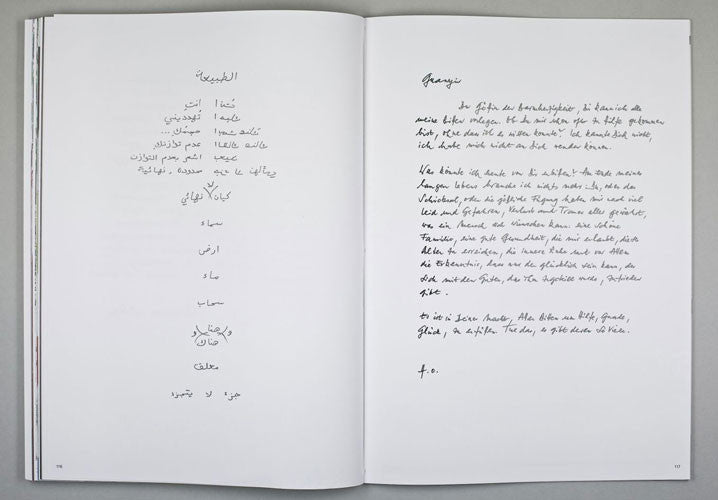 الطبيعة
أنتِ
تُهدديني
حجمك ...
عدم توازنك
اشعر بعدم التوازن
محدودة ، نهائية
لا
كيان نهائي
سماء
ارض
ماء
سحاب
و هنا و
هناك
معلق
جزء لا يتجزء
116
Guanyin
Du Göttin der Barmherzigkeit, Dir kann ich alle
meine Bitten vorlegen. Ob Du mir schon öfter zu Hilfe gekommen
bist, ohne dass ich es wissen konnte? Ich kannte Dich nicht,
ich habe mich nicht an Dich wenden können.
Was könnte ich heute von Dir erbitten? Am Ende meines
langen Lebens brauche ich nichts mehr. Du, oder das
Schicksal, oder die göttliche Fügung haben mir nach viel
Leid und Gefahren, Verlust und Trauer alles gewährt,
was ein Mensch sich wünschen kann: eine schöne
Familie, eine gute Gesundheit, die mir erlaubt, dieses
Alter zu erreichen, die innere Ruhe und vor Allem
die Erkenntnis, dass nur der glücklich sein kann, der
sich mit dem Guten, das ihm zugeteilt wurde, zufrieden
gibt.
Es ist in Deiner Macht, Allen Bitten um Hilfe, Gnade,
Glück, zu erfüllen. Tue das, es gibt deren so viele.
A.O.
117